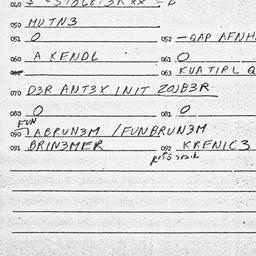 050 MUTN3
051 O 052 — GAP AFNH
060 A KENDL 061 O
063 KUATIRL
070 D3R ANT3X INIT ZOJB3R
080 O 081 O
FUN
090 ABRUN3M / FUNBRUN3M
091 BRIN3MER 092 KRENIC3